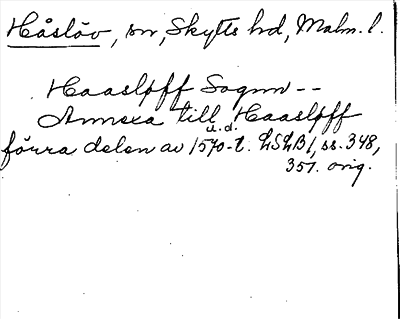 Håslöv, sn, Skytts hd, Malm. l.
Haasløff Sognn --
Annexa till Haasløff
u. d.
förra delen av 1570-t. LSLB 1, ss. 348,
351. orig.